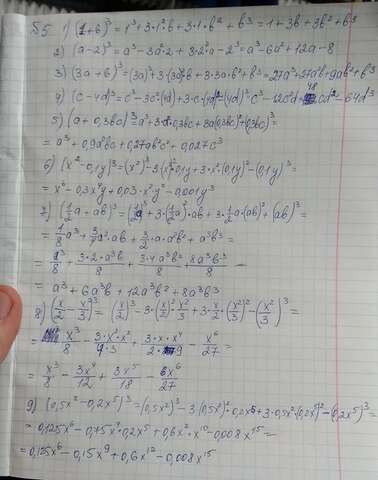 §5 1) (1+b)³ = 1³+3·1²·b+3·1·b²+b³ = 1+3b+3b²+b³
2) (a-2)³ = a³-3a²·2+3·2²a-2³ = a³-6a²+12a-8
3) (3a+b)³ = (3a)³+3·(3a)²b+3·3a·b²+b³ = 27a³+27a²b+9ab²+b³
4) (c-4d)³ = c³-3c²(4d)+3·c·(4d)²-(4d)³ = c³-12c²d+48cd²-64d³
5) (a+0,3bc)³ = a³+3·a²·0,3bc+3a(0,3bc)²+(0,3bc)³ =
= a³+0,9a²bc+0,27ab²c²+0,027c³
6) (x²-0,1y)³ = (x²)³-3(x²)²·0,1y+3·x²·(0,1y)²-(0,1y)³ =
= x⁶-0,3x⁴y+0,03·x²y²-0,001y³
7) (½a+ab)³ = (½a)³+3·(½a)²·ab+3·½a·(ab)²+(ab)³ =
= ⅛a³+¾a²·ab+3/2·a·a²b²+a³b³ =
= a³/8+3·2·a³b/8+3·4a³b²/8+8a³b³/8 =
= a³+6a³b+12a³b²+8a³b³
8) (x/2-x²/3)³ = (x/2)³-3·(x/2)²·x²/3+3·x/2·(x²/3)²-(x²/3)³ =
= x³/8-3·x²·x²/4·3+3·x·x⁴/2·9-x⁶/27 =
= x³/8-3x⁴/12+3x⁵/18-x⁶/27
9) (0,5x²-0,2x⁵)³ = (0,5x²)³-3(0,5x²)²·0,2x⁵+3·0,5x²(0,2x⁵)²-(0,2x⁵)³ =
= 0,125x⁶-0,75x⁴·0,2x⁵+0,6x²·x¹⁰-0,008x¹⁵ =
= 0,125x⁶-0,15x⁹+0,6x¹²-0,008x¹⁵